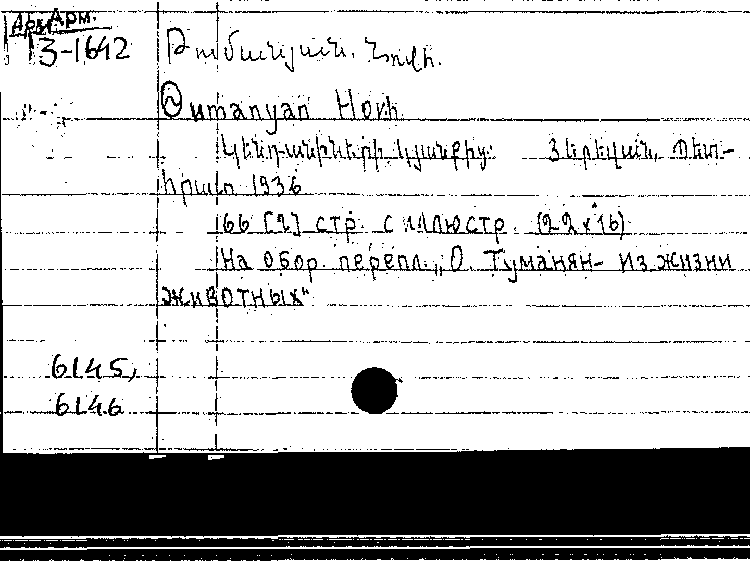 Арм. Арм.
3-1642
Թումանյան. Հովհ.
Tumanyan Hovh.
Կենդանիների կյանքից: Յերեվան, Պետ-
հրատ 1936
66 [2] стр. с иллюстр. (22 x 16)
На обор. перепл. „О. Туманян- из жизни
животных"
6145,
6146